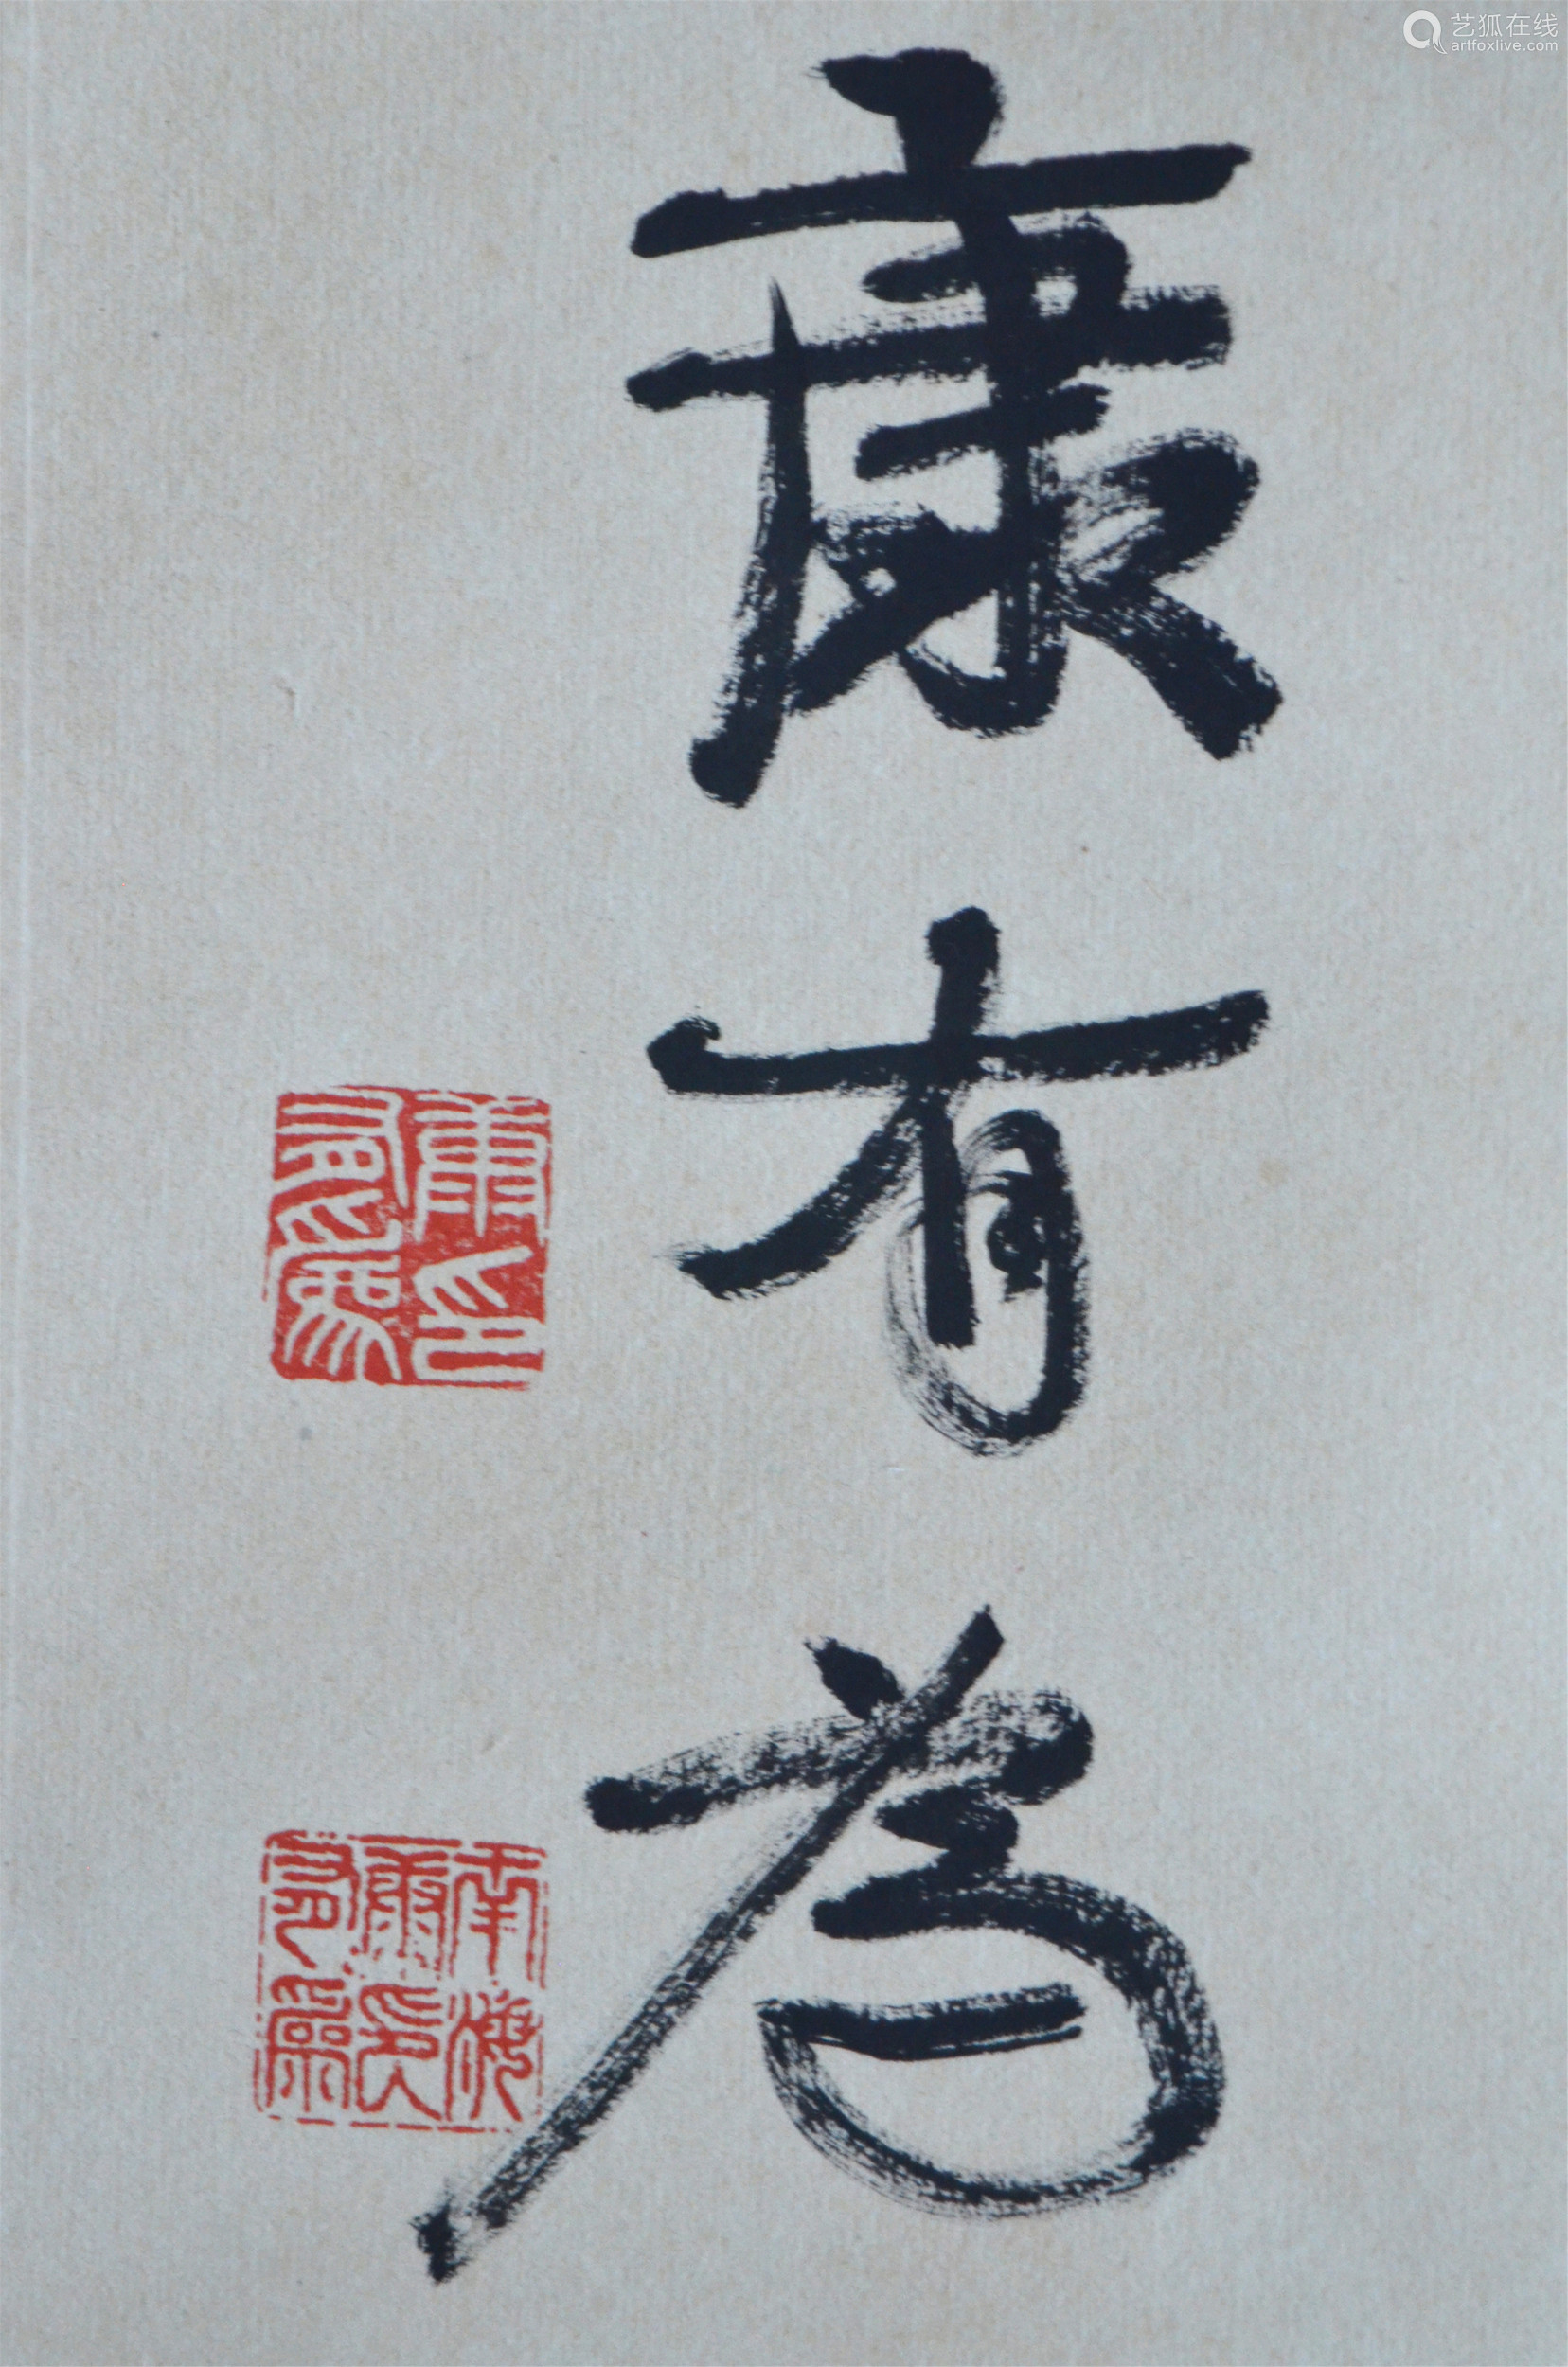 艺狐在线
artfoxlive.com
康有為
康印
有為
南海
康氏
有為